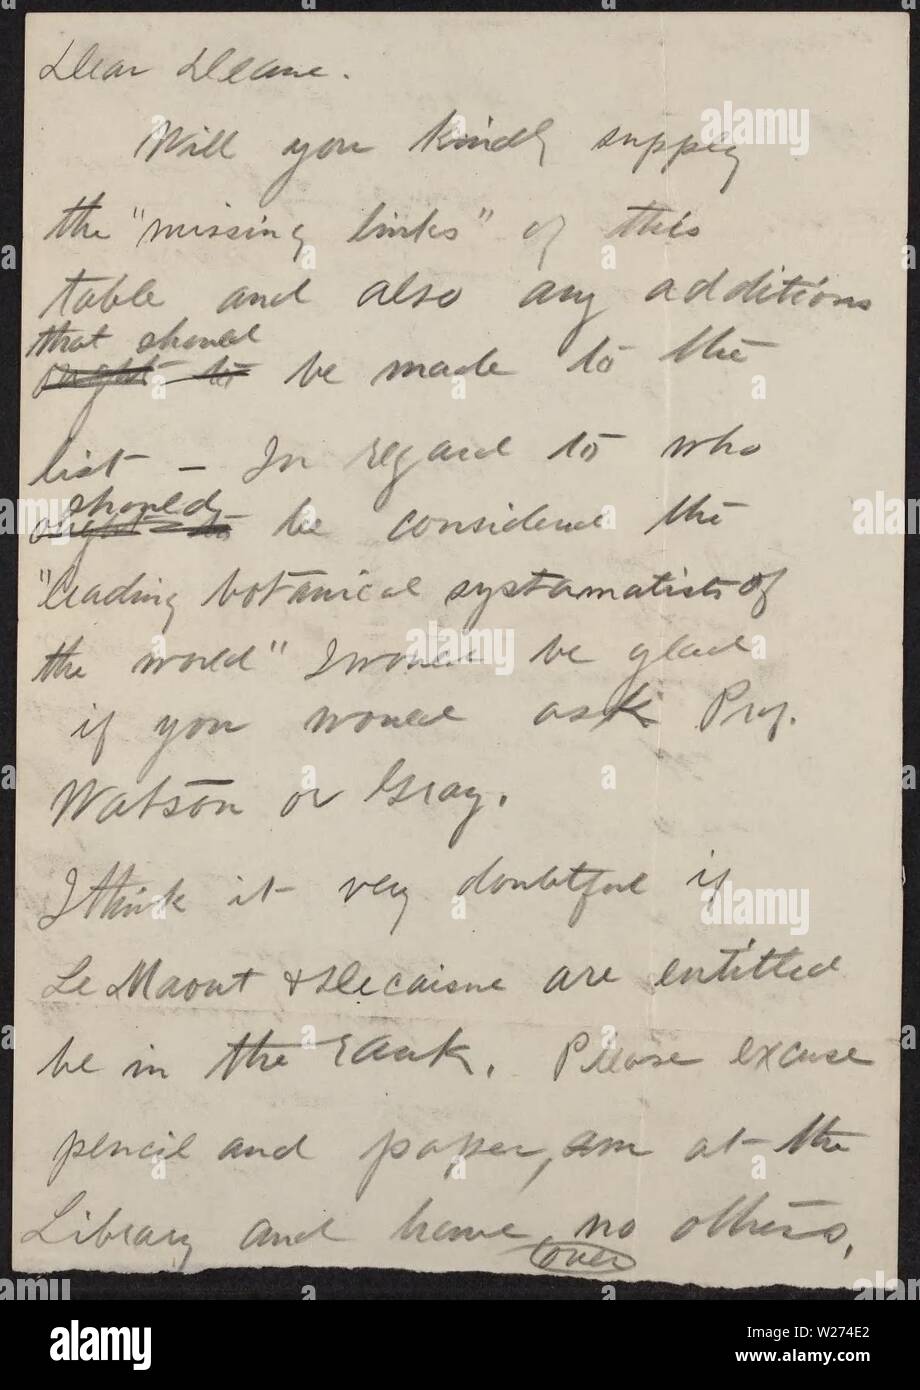 Dear Deane.
Will you kindly supply
the "missing links" of this
table and also any additions
that should
ought to be made to the
list – In regard to who
should
ought to be considered the
"leading botanical systamatists of
the world" I would be glad
if you would ask Prof.
Watson or Gray.
I think it very doubtful if
Le Maout & Decaisne are entitled
be in the rank. Please excuse
pencil and paper, am at the
Library and have no others.
(over)
alamy
Image ID: W274E2
www.alamy.com